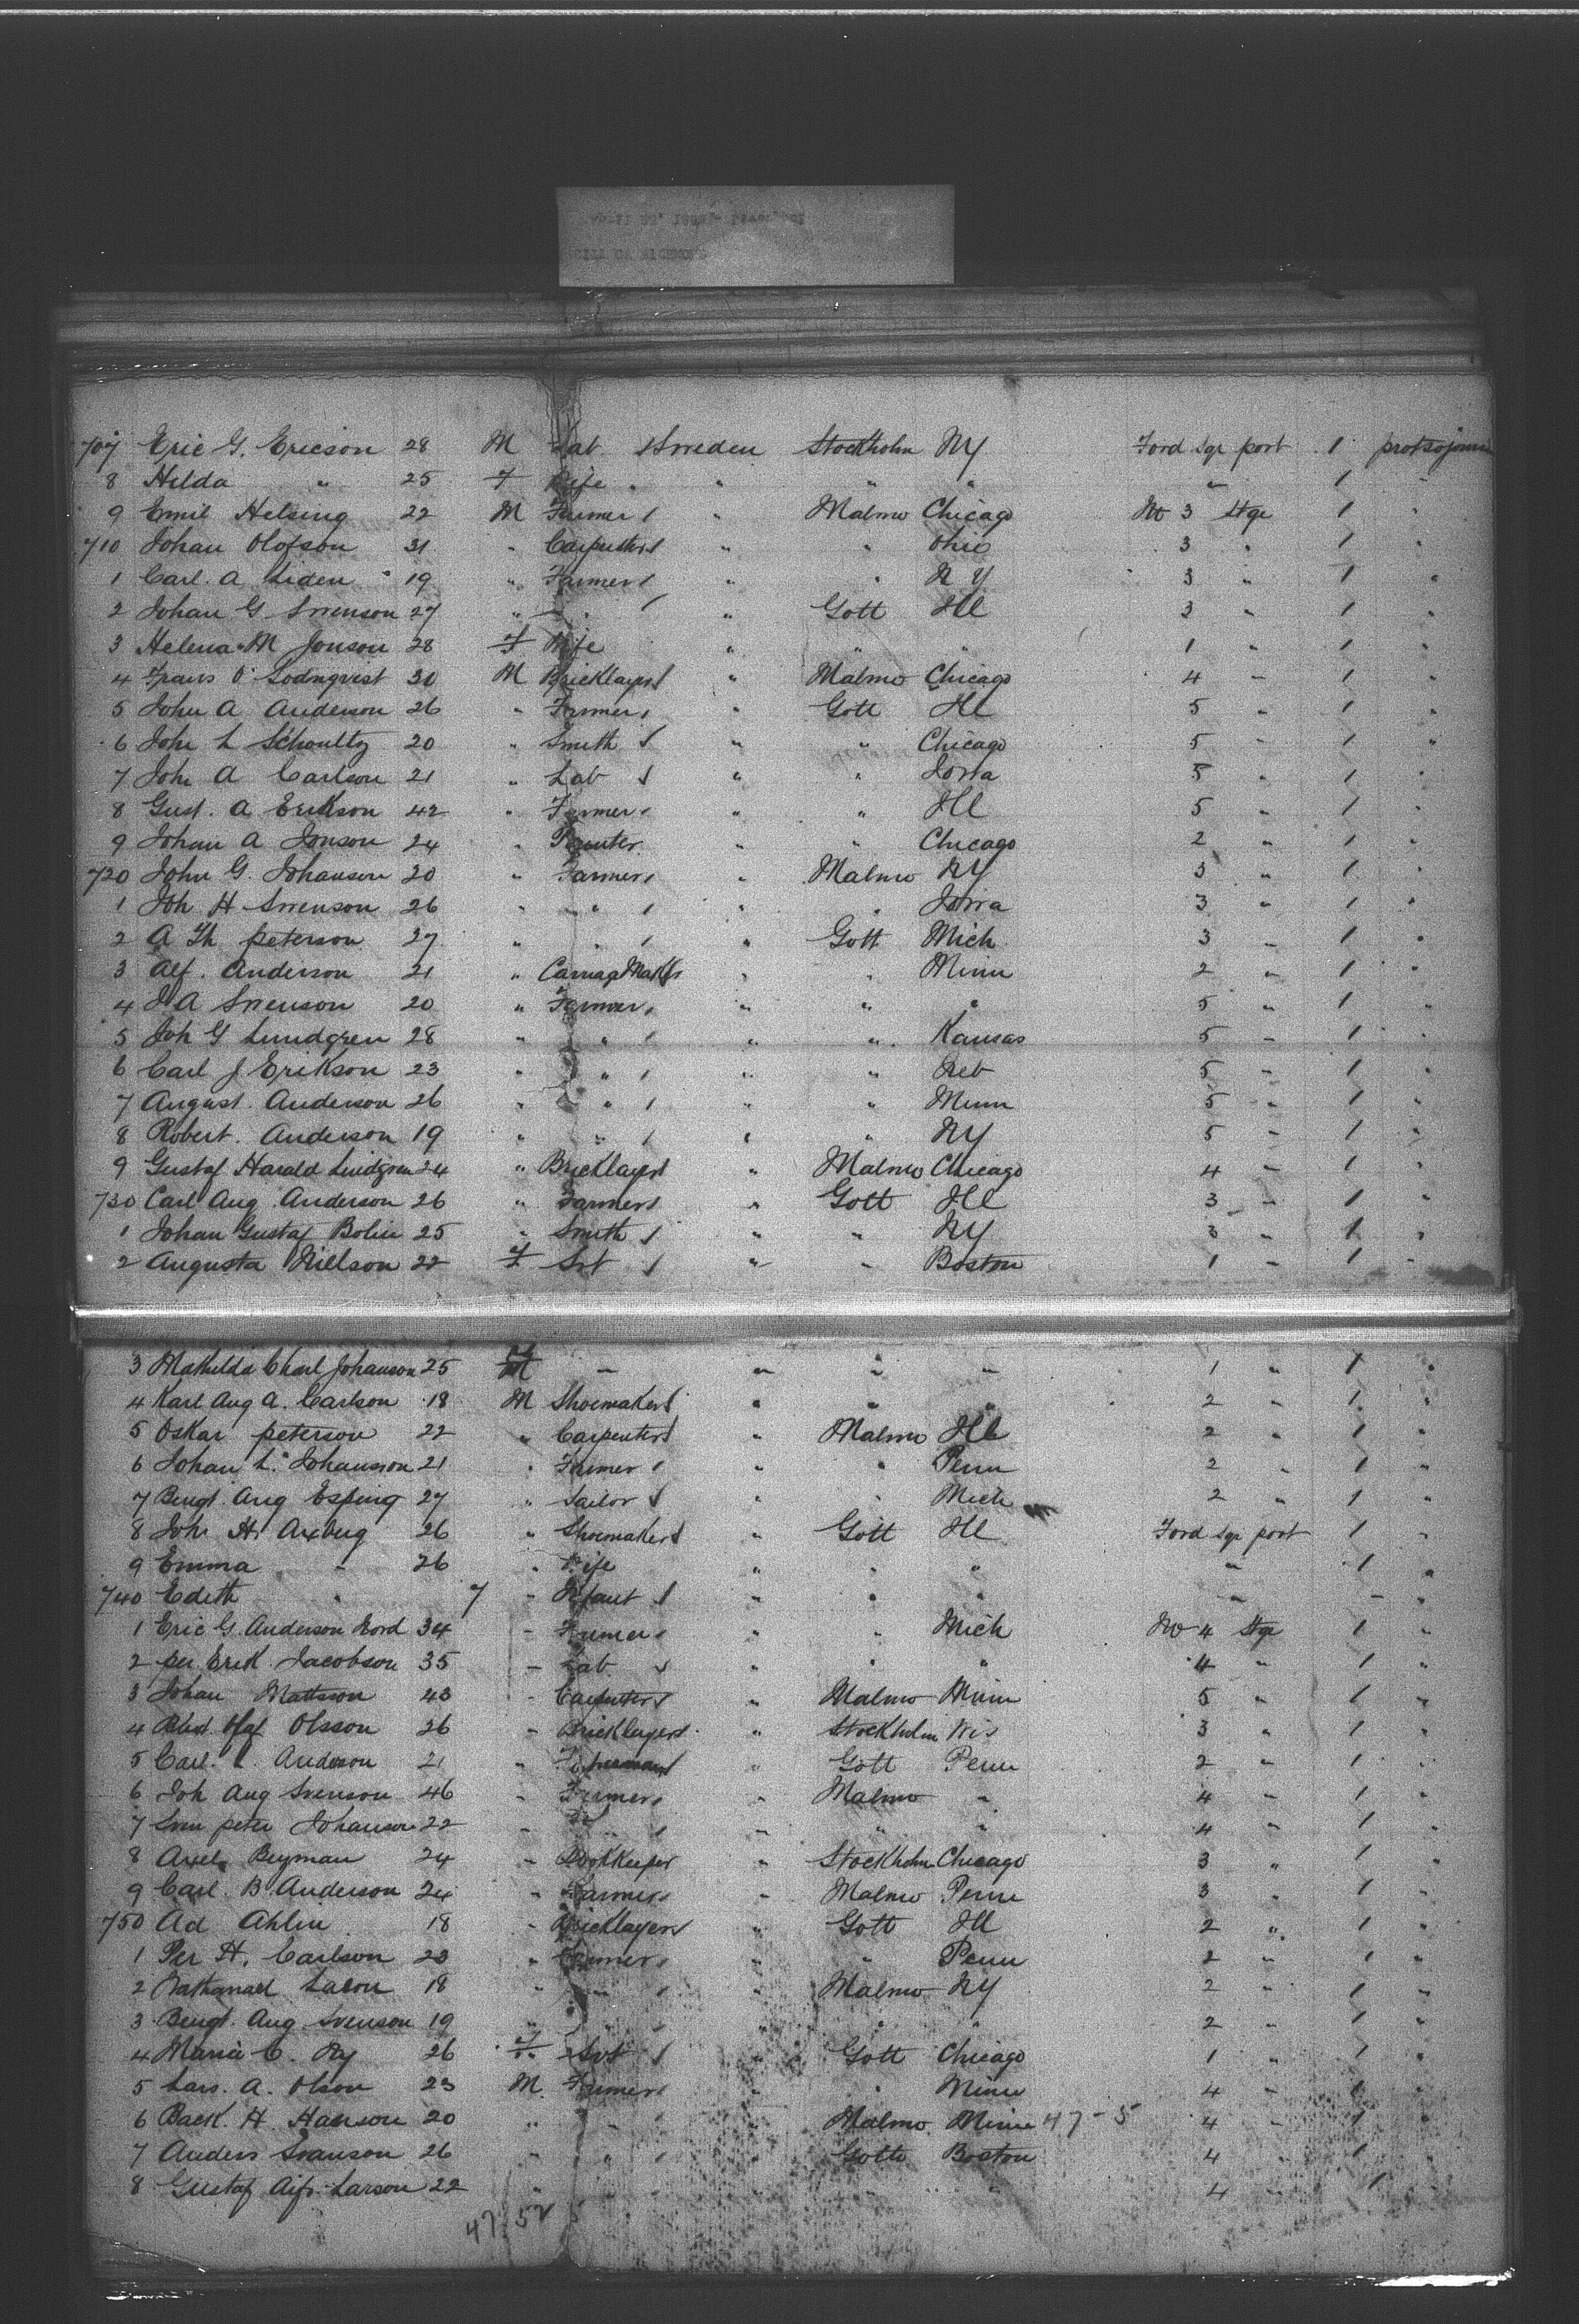 CITY OF RICHMOND
707 Eric G. Ericson 28 M Lab. Sweden Stockholm NY Ford Sge port 1 protsojourn
8 Hilda " 25 F Wife " " " " " 1 "
9 Emil Helsing 22 M Farmer " Malmo Chicago No 3 Stge 1 "
710 Johan Olofson 31 " Carpenter " " Ohio 3 " 1 "
1 Carl. A Liden 19 " Farmer " " N Y 3 " 1 "
2 Johan G Svenson 27 " " " Gott Ill 3 " 1 "
3 Helena M Jonson 28 F Wife " " " 1 " 1 "
4 Frans O Sodnqvist 30 M Bricklayer " Malmo Chicago 4 " 1 "
5 John A Anderson 26 " Farmer " Gott Ill 5 " 1 "
6 Joh L Schoultz 20 " Smith " " Chicago 5 " 1 "
7 Joh A Carlson 21 " Lab " " Iowa 5 " 1 "
8 Gust. A Erikson 42 " Farmer " " Ill 5 " 1 "
9 Johan A Jonson 24 " Painter " " Chicago 2 " 1 "
720 John G. Johanson 20 " Farmer " Malmo NY 3 " 1 "
1 Joh H Svenson 26 " " " " Iowa 3 " 1 "
2 A Th peterson 27 " " " Gott Mich 3 " 1 "
3 Alf. Anderson 21 " Carriage Mak " " Minn 2 " 1 "
4 J A Svenson 20 " Farmer " " " 5 " 1 "
5 Joh G Lundgren 28 " " " " Kansas 5 " 1 "
6 Carl J Erikson 23 " " " " Neb 5 " 1 "
7 August. Anderson 26 " " " " Minn 5 " 1 "
8 Robert. Anderson 19 " " " " NY 5 " 1 "
9 Gustaf Harald Lindgren 24 " Bricklayer " Malmo Chicago 4 " 1 "
730 Carl Aug. Anderson 26 " Farmer " Gott Ill 3 " 1 "
1 Johan Gustaf Bolin 25 " Smith " " NY 3 " 1 "
2 Augusta Nillson 22 F Svt " " Boston 1 " 1 "
3 Mathilda Charl Johanson 25 F " " " " 1 " 1 "
4 Karl Aug A. Carlson 18 M Shoemaker " " " 2 " 1 "
5 Oskar peterson 22 " Carpenter " Malmo Ill 2 " 1 "
6 Johan L. Johansson 21 " Farmer " " Penn 2 " 1 "
7 Bengt Aug Esping 27 " Sailor " " Mich 2 " 1 "
8 Joh H. Axberg 26 " Shoemaker " Gott Ill Ford Sge port 1 "
9 Emma " 26 " Wife " " " " 1 "
740 Edith " 7 " Infant " " " " " "
1 Eric G. Anderson Nord 34 " Farmer " " Mich No 4 Stge 1 "
2 per Erik Jacobson 35 " Lab " " " 4 " 1 "
3 Johan Mattsson 43 " Carpenter " Malmo Minn 5 " 1 "
4 Olof Olsson 26 " Bricklayer " Stockholm Wis 3 " 1 "
5 Carl. L Anderson 21 " " Gott Penn 2 " 1 "
6 Joh Aug Svenson 46 " Farmer " Malmo " 4 " 1 "
7 Sven peter Johanson 22 " " " " " 4 " 1 "
8 Axel Beyman 24 " Bookkeeper " Stockholm Chicago 3 " 1 "
9 Carl. B Anderson 24 " Farmer " Malmo Penn 3 " 1 "
750 Ad Ahlin 18 " Bricklayer " Gott Ill 2 " 1 "
1 Per H. Carlson 23 " Farmer " " Penn 2 " 1 "
2 Nathanael Salon 18 " " " Malmo NY 2 " 1 "
3 Bengt. Aug Svenson 19 " " " " " 2 " 1 "
4 Maria C. Ny 26 F Svt " Gott Chicago 1 " 1 "
5 Lars. A. Olson 23 M Farmer " " Minn 4 " 1 "
6 Back. H. Hanson 20 " " " Malmo Minn 47-5 4 " 1 "
7 Anders Svanson 26 " " " Gott Boston 4 " 1 "
8 Gustaf Alfr Larson 22 " " " " " 4 " 1
47 52 5